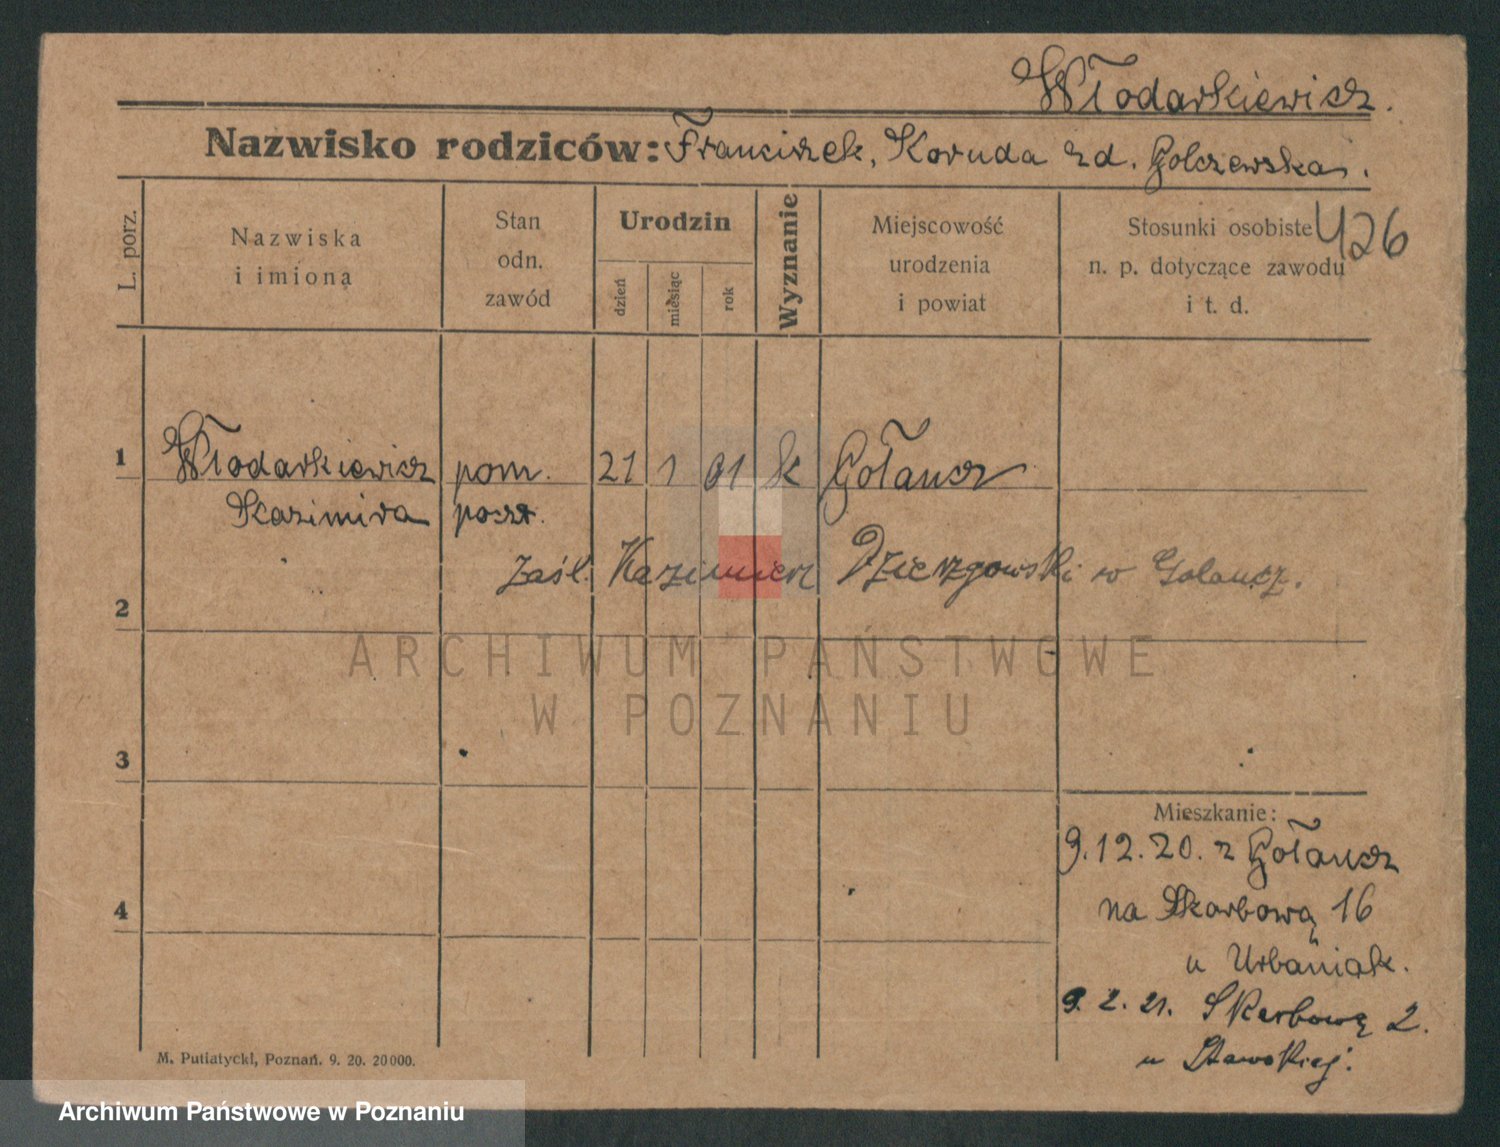 Włodarkiewicz.
Nazwisko rodziców: Franciszek, Koruda zd. Golczewska.
L. porz.
Nazwiska
i imiona
Stan
odn.
zawód
Urodzin
dzień
miesiąc
rok
Wyznanie
Miejscowość
urodzenia
i powiat
Stosunki osobiste
n. p. dotyczące zawodu
i t. d.
426
1 Włodarkiewicz pom. 21 1 01 k Gołancz
Kazimira poczt.
zaśl. Kazimierz Dzierzgowski w Golancz.
2
ARCHIWUM PAŃSTWOWE
W POZNANIU
3
Mieszkanie:
9.12.20. z Gołancz
4
na Skarbową 16
u Urbaniak.
9.2.21. Skarbową 2.
u Stawskiej.
M. Putiatycki, Poznań. 9. 20. 20000.
Archiwum Państwowe w Poznaniu